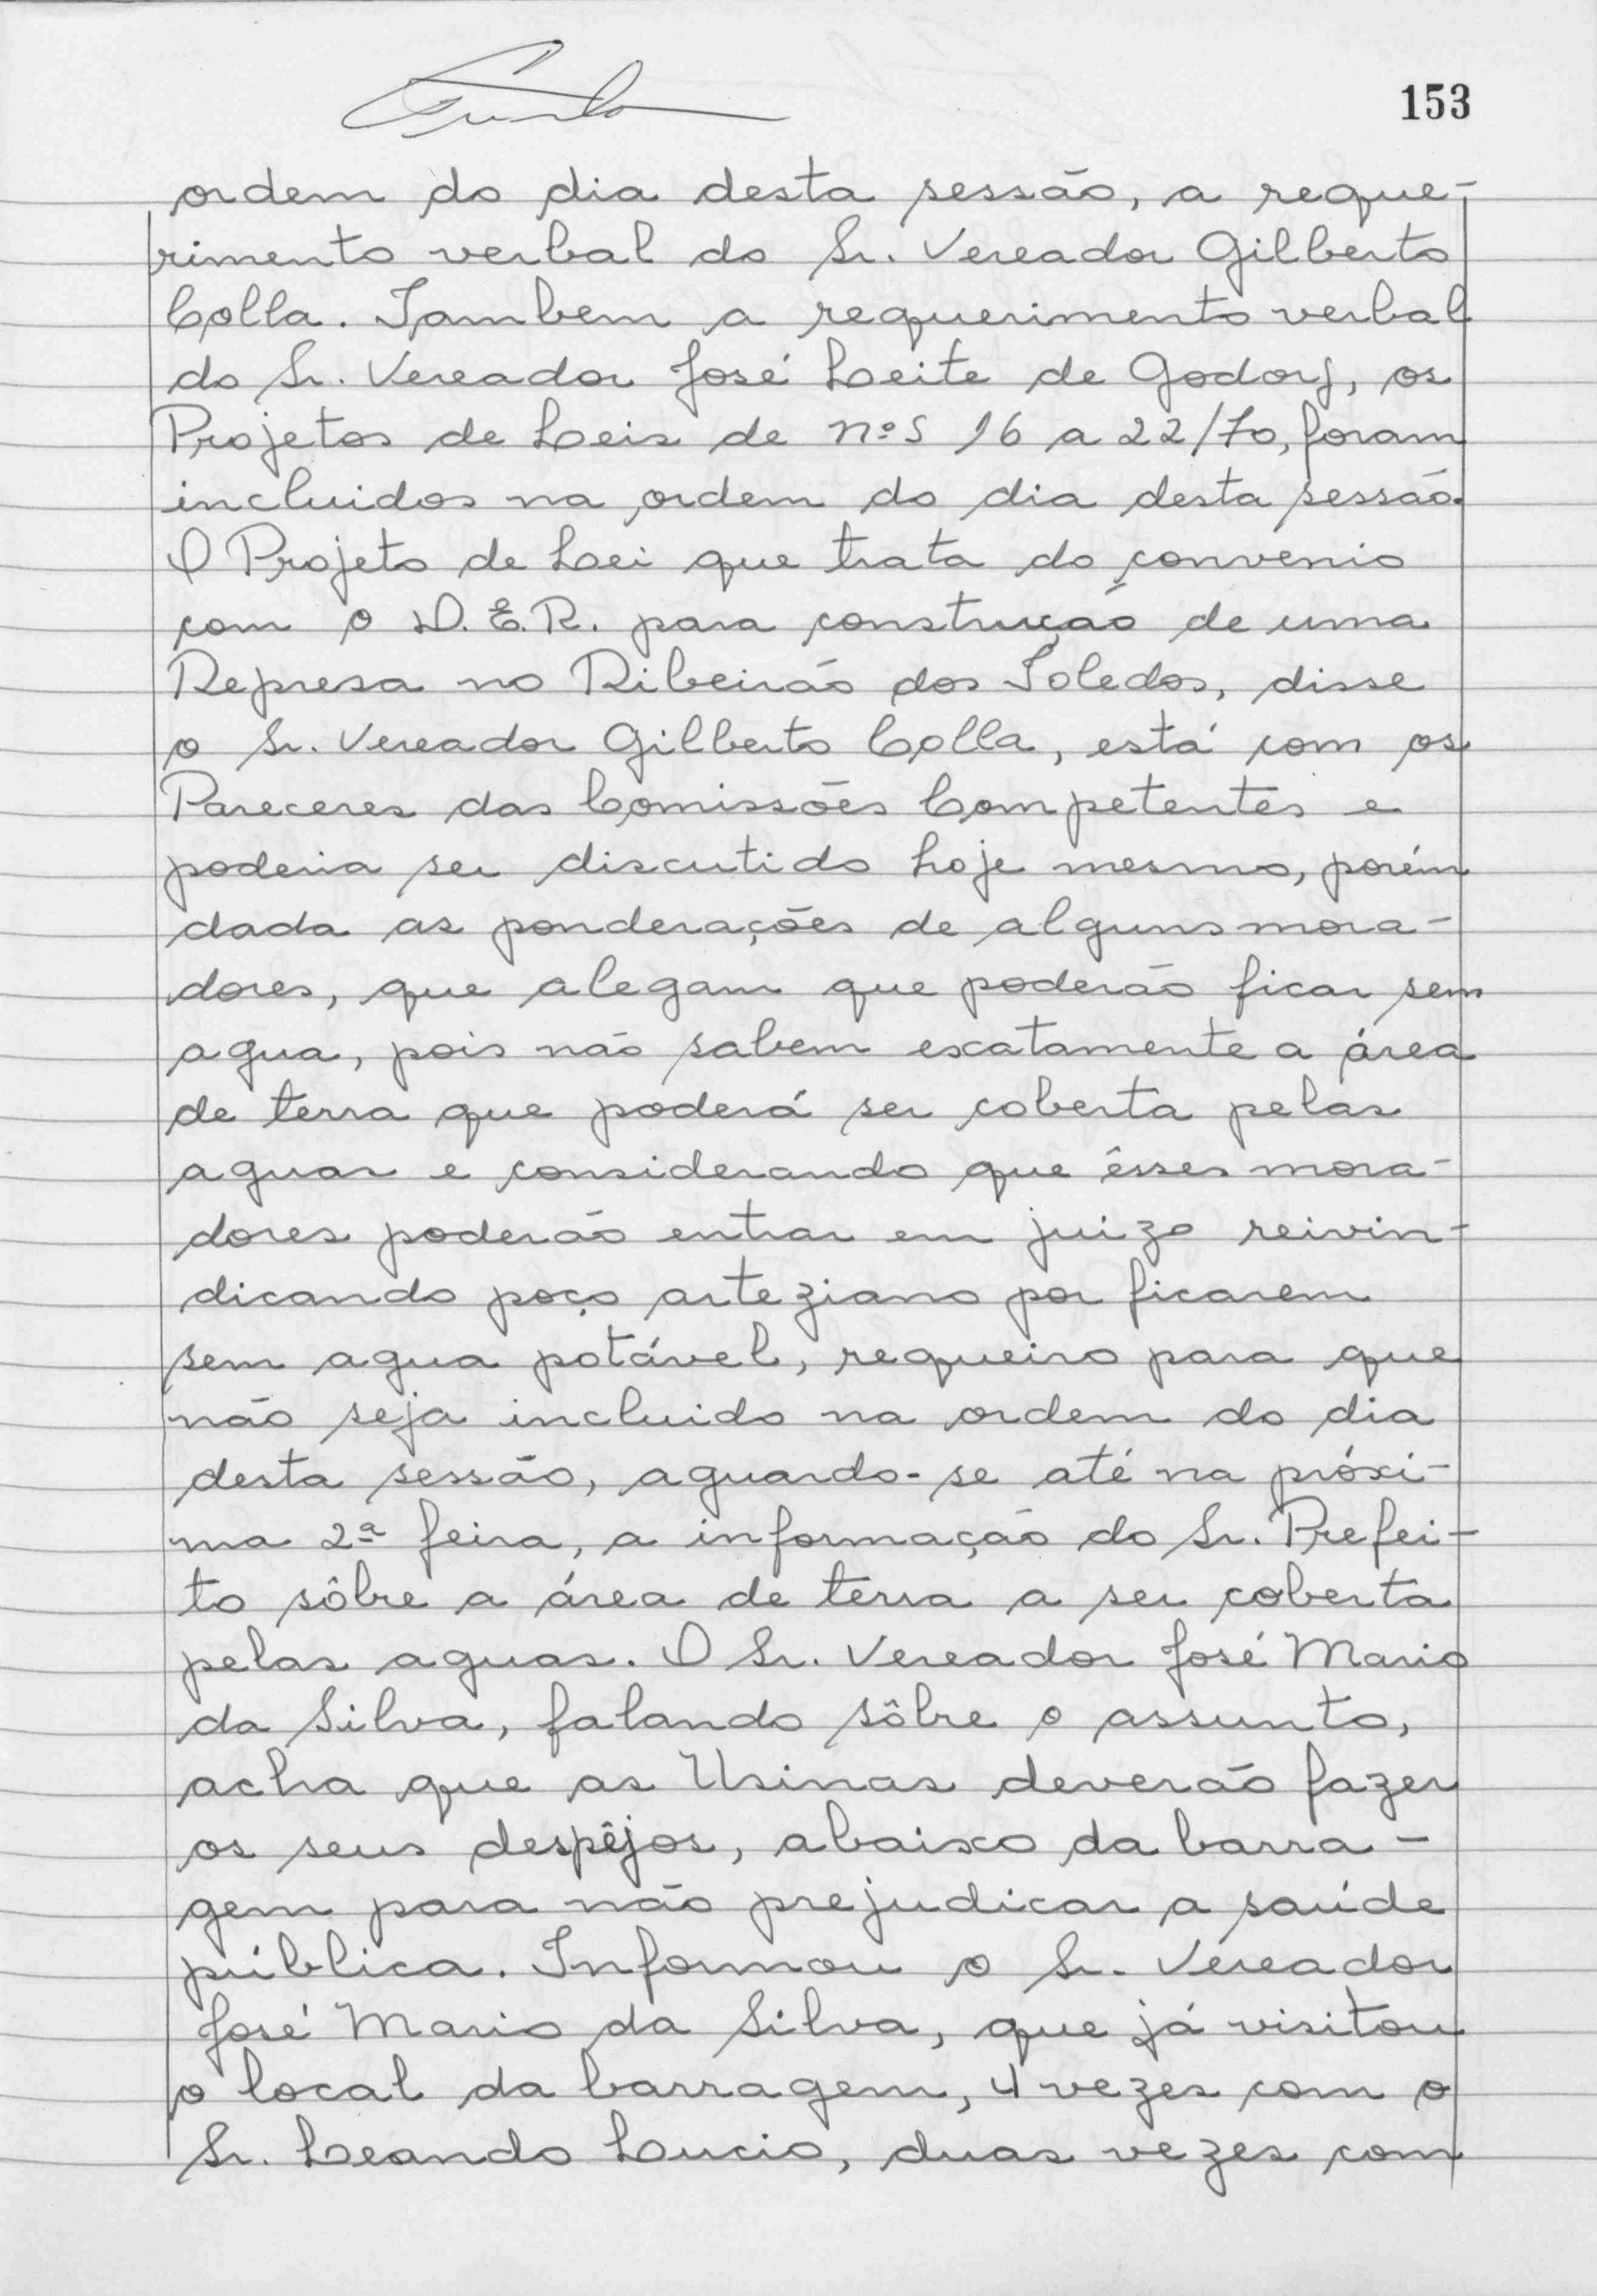 153
ordem do dia desta sessão, a reque-
rimento verbal do Sr. Vereador Gilberto
Colla. Tambem a requerimento verbal
do Sr. Vereador José Leite de Godoy, os
Projetos de Leis de nºs 16 a 22/70, foram
incluidos na ordem do dia desta sessão.
O Projeto de Lei que trata do convenio
com o D.E.R. para construção de uma
Represa no Ribeirão dos Toledos, disse
o Sr. Vereador Gilberto Colla, está com os
Pareceres das Comissões Competentes e
poderia ser discutido hoje mesmo, porém
dada as ponderações de alguns mora-
dores, que alegam que poderão ficar sem
agua, pois não sabem exatamente a área
de terra que poderá ser coberta pelas
aguas e considerando que êsses mora-
dores poderão entrar em juizo reivin-
dicando poço arteziano por ficarem
sem agua potável, requeiro para que
não seja incluido na ordem do dia
desta sessão, aguardo-se até na próxi-
ma 2ª feira, a informação do Sr. Prefei-
to sôbre a área de terra a ser coberta
pelas aguas. O Sr. Vereador José Mario
da Silva, falando sôbre o assunto,
acha que as Usinas deverão fazer
os seus despêjos, abaixo da barra-
gem para não prejudicar a saúde
pública. Informou o Sr. Vereador
José Mario da Silva, que já visitou
o local da barragem, 4 vezes com o
Sr. Leando Lucio, duas vezes com